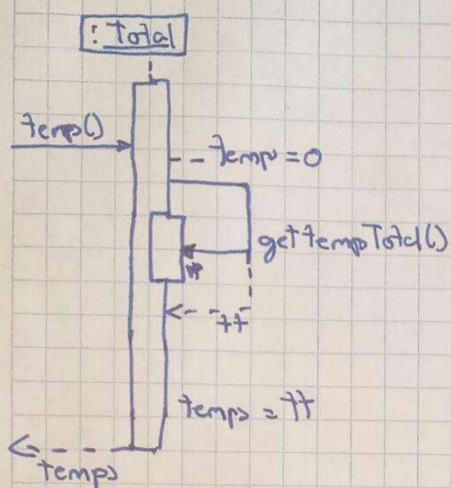 : Total
temps()
temps = 0
get tempTotal()
*
tt
temps = tt
temps